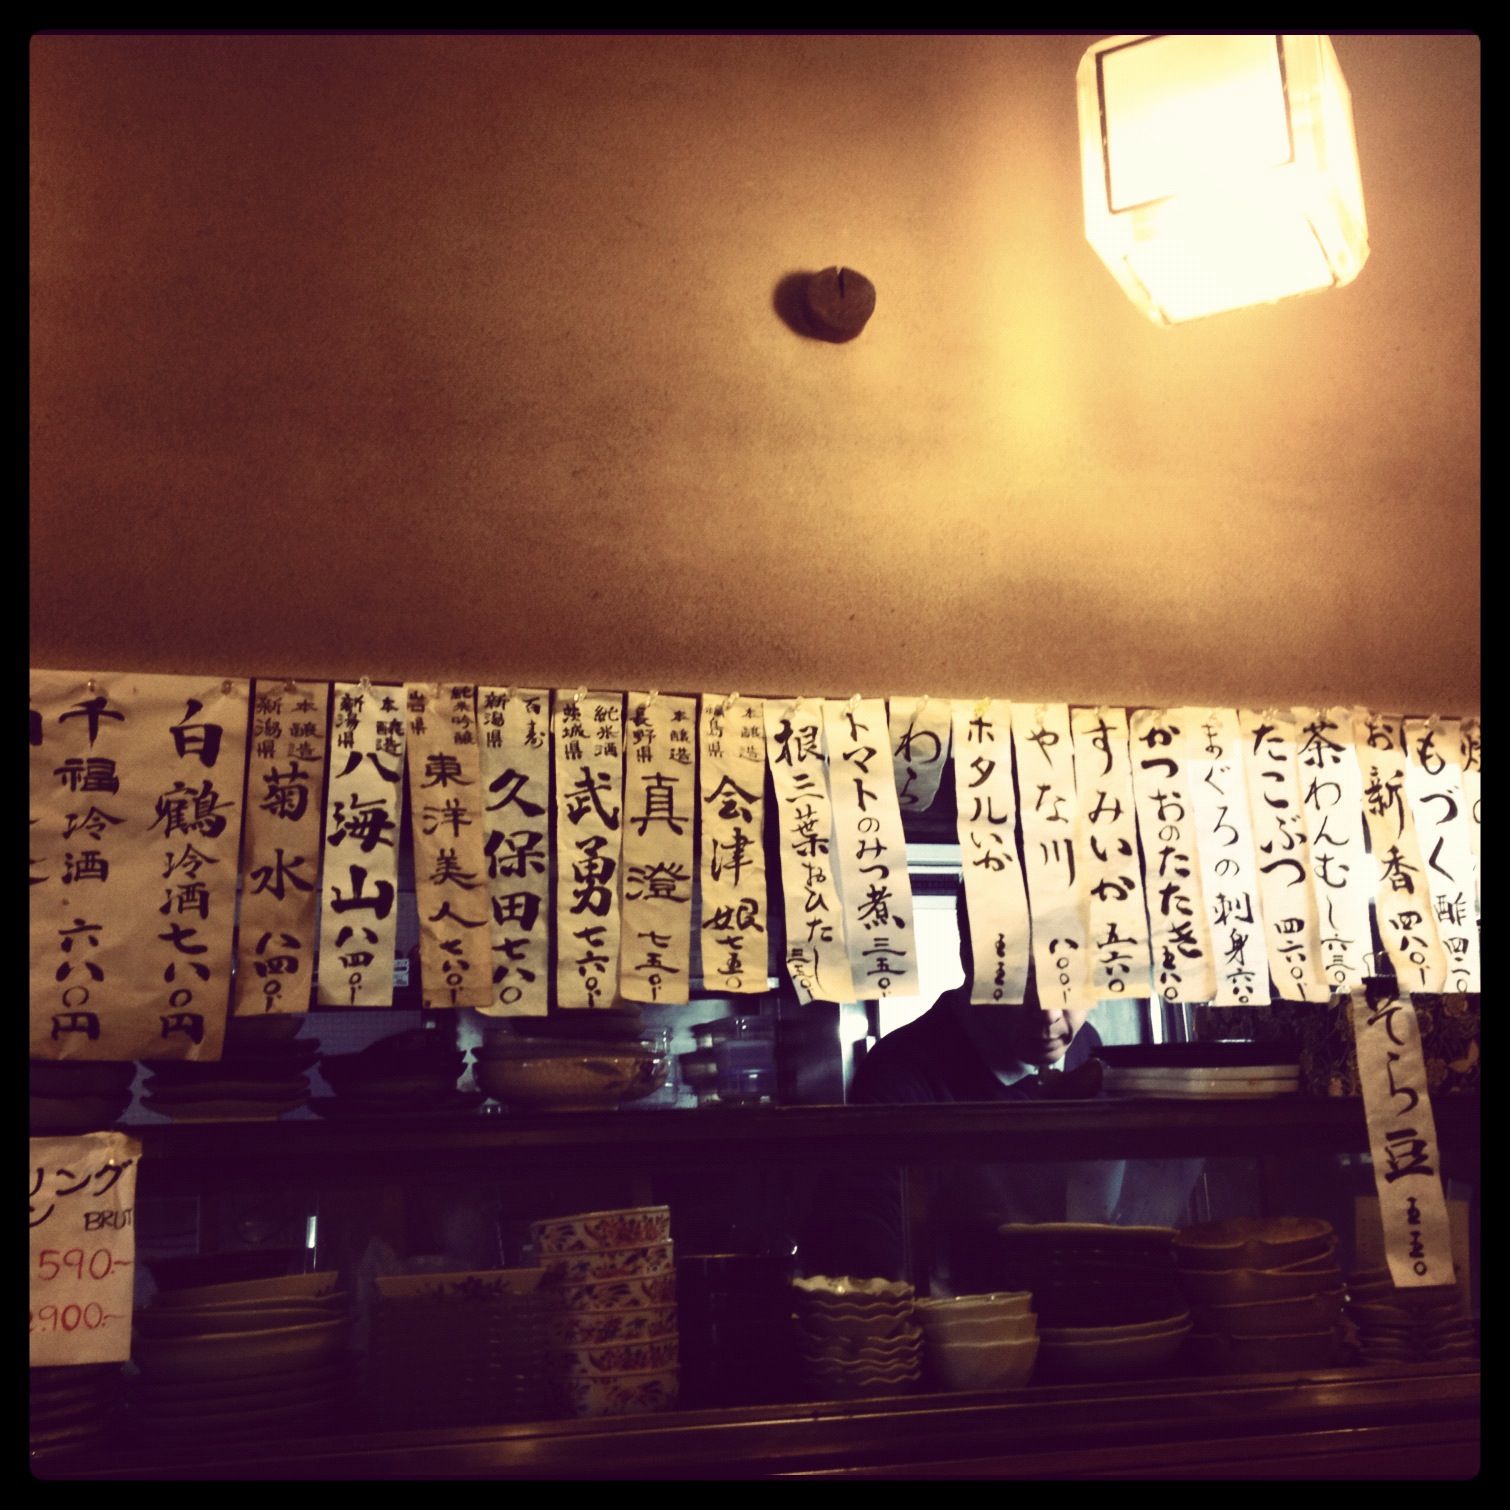 千福冷酒 六八〇円
白鶴冷酒 七八〇円
本醸造
新潟県
菊水 八四〇
本醸造
新潟県
八海山 八四〇
純米吟醸
東洋美人 七八〇
百寿
新潟県
久保田 七八〇
純米酒
茨城県
武勇 七六〇
本醸造
長野県
真澄 七五〇
本醸造
福島県
会津娘 七五〇
根三葉おひたし 三三〇
トマトのみつ煮 三五〇
わら
ホタルいか 五五〇
やな川 八〇〇
すみいか 五六〇
かつおのたたき 五八〇
まぐろの刺身 六〇
たこぶつ 四六〇
茶わんむし 六三〇
お新香 四八〇
もづく酢 四二〇
そら豆 五五〇
リング
ン BRUT
590.-
2.900.-